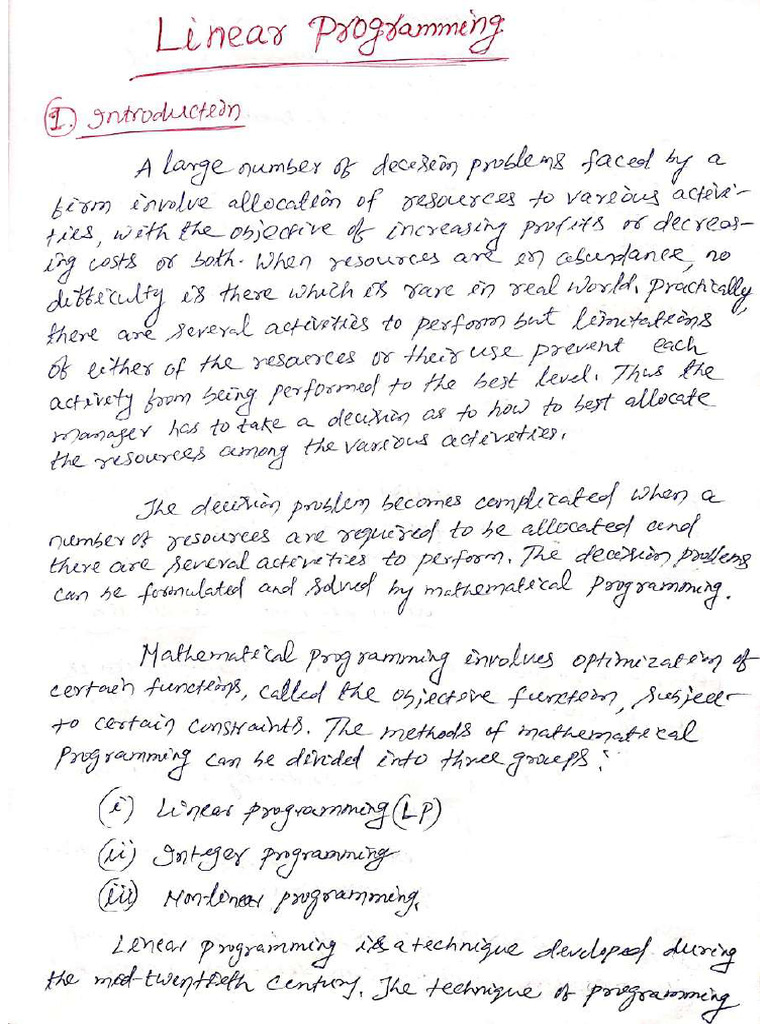 Linear Programming
1. Introduction
A large number of decision problems faced by a
firm involve allocation of resources to various activi-
ties, with the objective of increasing profits or decreas-
ing costs or both. When resources are in abundance, no
difficulty is there which is rare in real world. Practically,
there are several activities to perform but limitations
of either of the resources or their use prevent each
activity from being performed to the best level. Thus the
manager has to take a decision as to how to best allocate
the resources among the various activities.
The decision problem becomes complicated when a
number of resources are required to be allocated and
there are several activities to perform. The decision problems
can be formulated and solved by mathematical programming.
Mathematical programming involves optimization of
certain functions, called the objective function, subject
to certain constraints. The methods of mathematical
Programming can be divided into three groups:
(i) Linear programming (LP)
(ii) Integer programming
(iii) Non-linear programming.
Linear programming is a technique developed during
the mid-twentieth century. The technique of programming